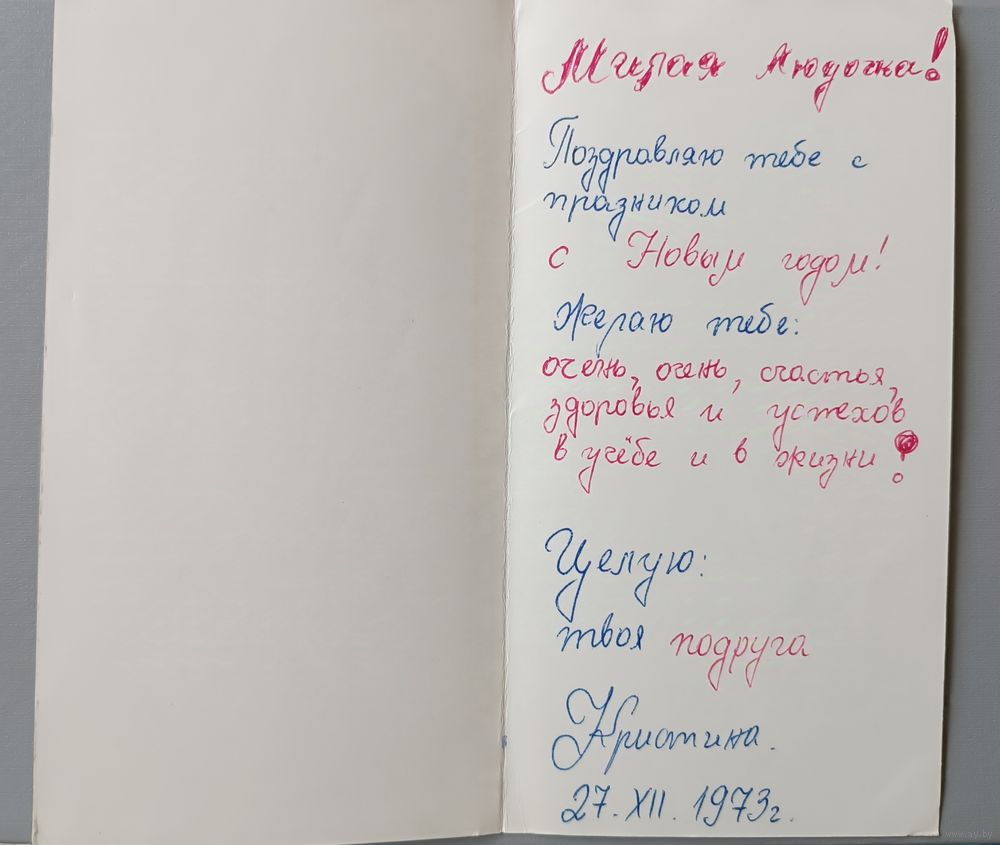 Милая Людочка!
Поздравляю тебе с
празником
с Новым годом!
Желаю тебе:
очень, очень, счастья,
здоровья и успехов
в учёбе и в жизни!
Целую:
твоя подруга
Кристина.
27. XII. 1973г.
www.ay.by